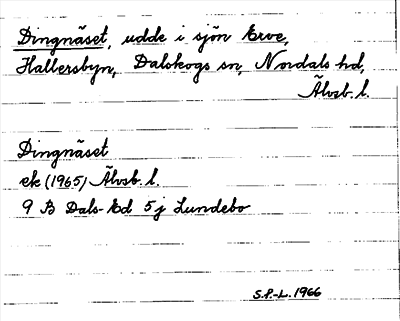 Dingnäset, udde i sjön Erve,
Hallersbyn, Dalskogs sn, Nordals hd,
Älvsb. l.
Dingnäset
ek (1965) Älvsb. l.
9 B Dals-Ed 5j Lundebo
S.P.-L. 1966